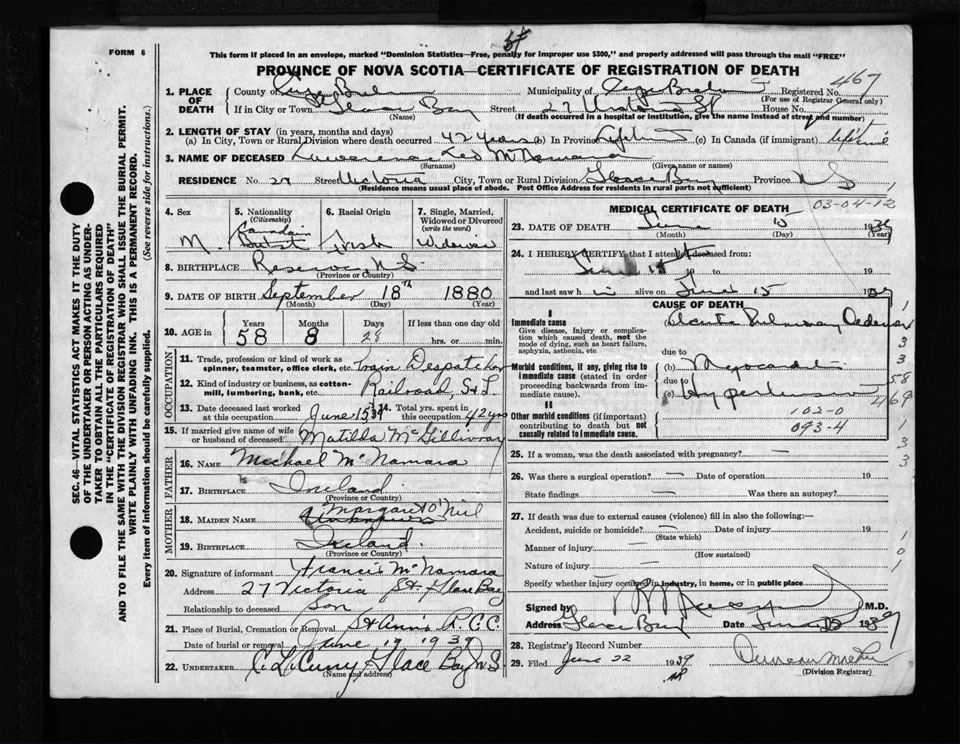 FORM 6
This form if placed in an envelope, marked "Dominion Statistics—Free, penalty for improper use $300," and properly addressed will pass through the mail "FREE"
PROVINCE OF NOVA SCOTIA—CERTIFICATE OF REGISTRATION OF DEATH
467
1. PLACE OF DEATH County of Cape Breton Municipality of Cape Breton Registered No.
(For use of Registrar General only)
If in City or Town Glace Bay Street 27 Victoria St House No.
(Name) (If death occurred in a hospital or institution, give the name instead of street and number)
2. LENGTH OF STAY (in years, months and days)
(a) In City, Town or Rural Division where death occurred 42 years (b) In Province Life (c) In Canada (if immigrant) life time
3. NAME OF DECEASED Lawrence Leo McNamara
(Surname) (Given name or names)
RESIDENCE No. 27 Street Victoria City, Town or Rural Division Glace Bay Province N S
(Residence means usual place of abode. Post Office Address for residents in rural parts not sufficient)
SEC. 46—VITAL STATISTICS ACT MAKES IT THE DUTY
OF THE UNDERTAKER OR PERSON ACTING AS UNDERTAKER
TO OBTAIN ALL THE PARTICULARS REQUIRED
IN THE "CERTIFICATE OF REGISTRATION OF DEATH"
AND TO FILE THE SAME WITH THE DIVISION REGISTRAR WHO SHALL ISSUE THE BURIAL PERMIT.
WRITE PLAINLY WITH UNFADING INK. THIS IS A PERMANENT RECORD.
Every item of information should be carefully supplied. (See reverse side for instructions.)
4. Sex 5. Nationality (Citizenship) 6. Racial Origin 7. Single, Married, Widowed or Divorced (write the word)
M. Canadian Irish Widower
8. BIRTHPLACE Reserve, N.S.
(Province or Country)
9. DATE OF BIRTH September 18th 1880
(Month) (Day) (Year)
10. AGE in Years Months Days If less than one day old
58 8 28 hrs. or min.
OCCUPATION
11. Trade, profession or kind of work as spinner, teamster, office clerk, etc. Train Despatcher
12. Kind of industry or business, as cotton-mill, lumbering, bank, etc. Railroad, S & L
13. Date deceased last worked at this occupation June 15 39 14. Total yrs. spent in this occupation 42 yrs
15. If married give name of wife or husband of deceased Matilda McGillivray
FATHER
16. NAME Michael McNamara
17. BIRTHPLACE Ireland
(Province or Country)
MOTHER
18. MAIDEN NAME Margaret O'Neil
19. BIRTHPLACE Ireland.
(Province or Country)
20. Signature of informant Francis McNamara
Address 27 Victoria St. Glace Bay
Relationship to deceased Son
21. Place of Burial, Cremation or Removal St Ann's R.C.C.
Date of burial or removal June 17 1939
22. UNDERTAKER Glace Bay N S
(Name and address)
03-04-12
MEDICAL CERTIFICATE OF DEATH
23. DATE OF DEATH June 15 1939
(Month) (Day) (Year)
24. I HEREBY CERTIFY that I attended deceased from:
19 to 19
and last saw h im alive on June 15 1939
CAUSE OF DEATH
I
Immediate cause Acute Pulmonary Oedema
Give disease, injury or complication which caused death, not the mode of dying, such as heart failure, asphyxia, asthenia, etc
due to
Morbid conditions, if any, giving rise to immediate cause (stated in order proceeding backwards from immediate cause). (b) Myocarditis
due to
(c) Hypertension
II
Other morbid conditions (if important) contributing to death but not causally related to immediate cause.
102-0
093-4
25. If a woman, was the death associated with pregnancy? —
26. Was there a surgical operation? — Date of operation — 19
State findings — Was there an autopsy?
27. If death was due to external causes (violence) fill in also the following:—
Accident, suicide or homicide? — Date of injury 19
(State which)
Manner of injury —
(How sustained)
Nature of injury —
Specify whether injury occurred in industry, in home, or in public place
Signed by M.D.
Address Glace Bay Date June 15 1939
28. Registrar's Record Number
29. Filed June 22 1939
(Division Registrar)